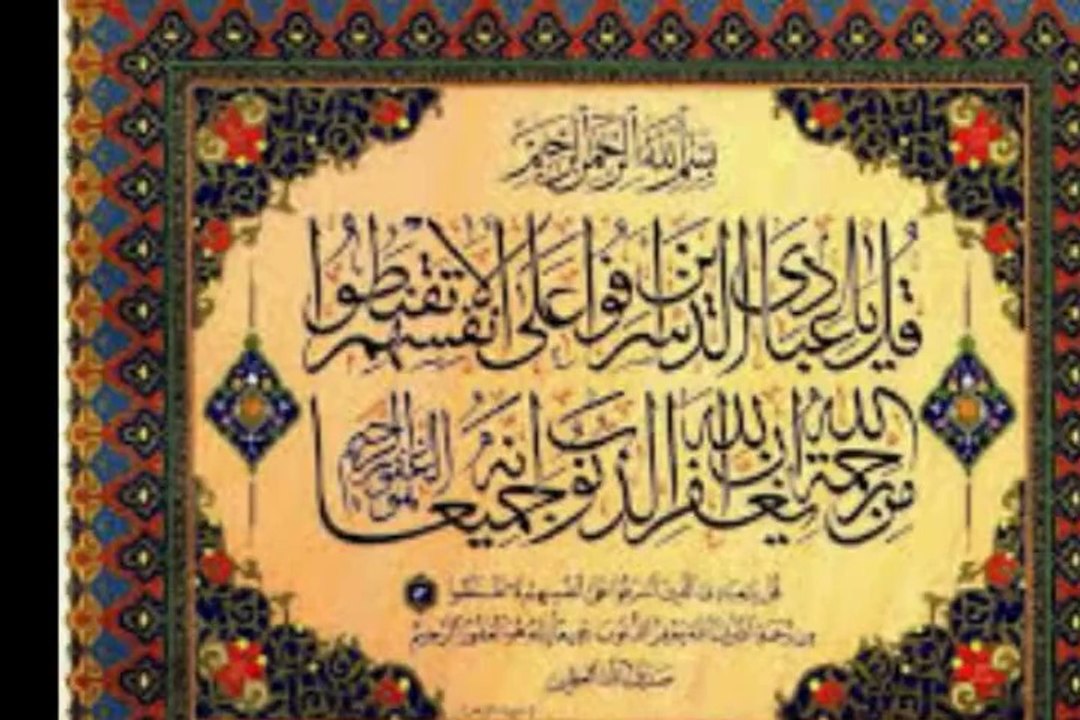 بسم الله الرحمن الرحيم
قل يا عبادي الذين اسرفوا على انفسهم لا تقنطوا
من رحمة الله ان الله يغفر الذنوب جميعا انه هو الغفور الرحيم
قل يا عبادي الذين أسرفوا على أنفسهم لا تقنطوا
من رحمة الله إن الله يغفر الذنوب جميعا إنه هو الغفور الرحيم
صدق الله العظيم